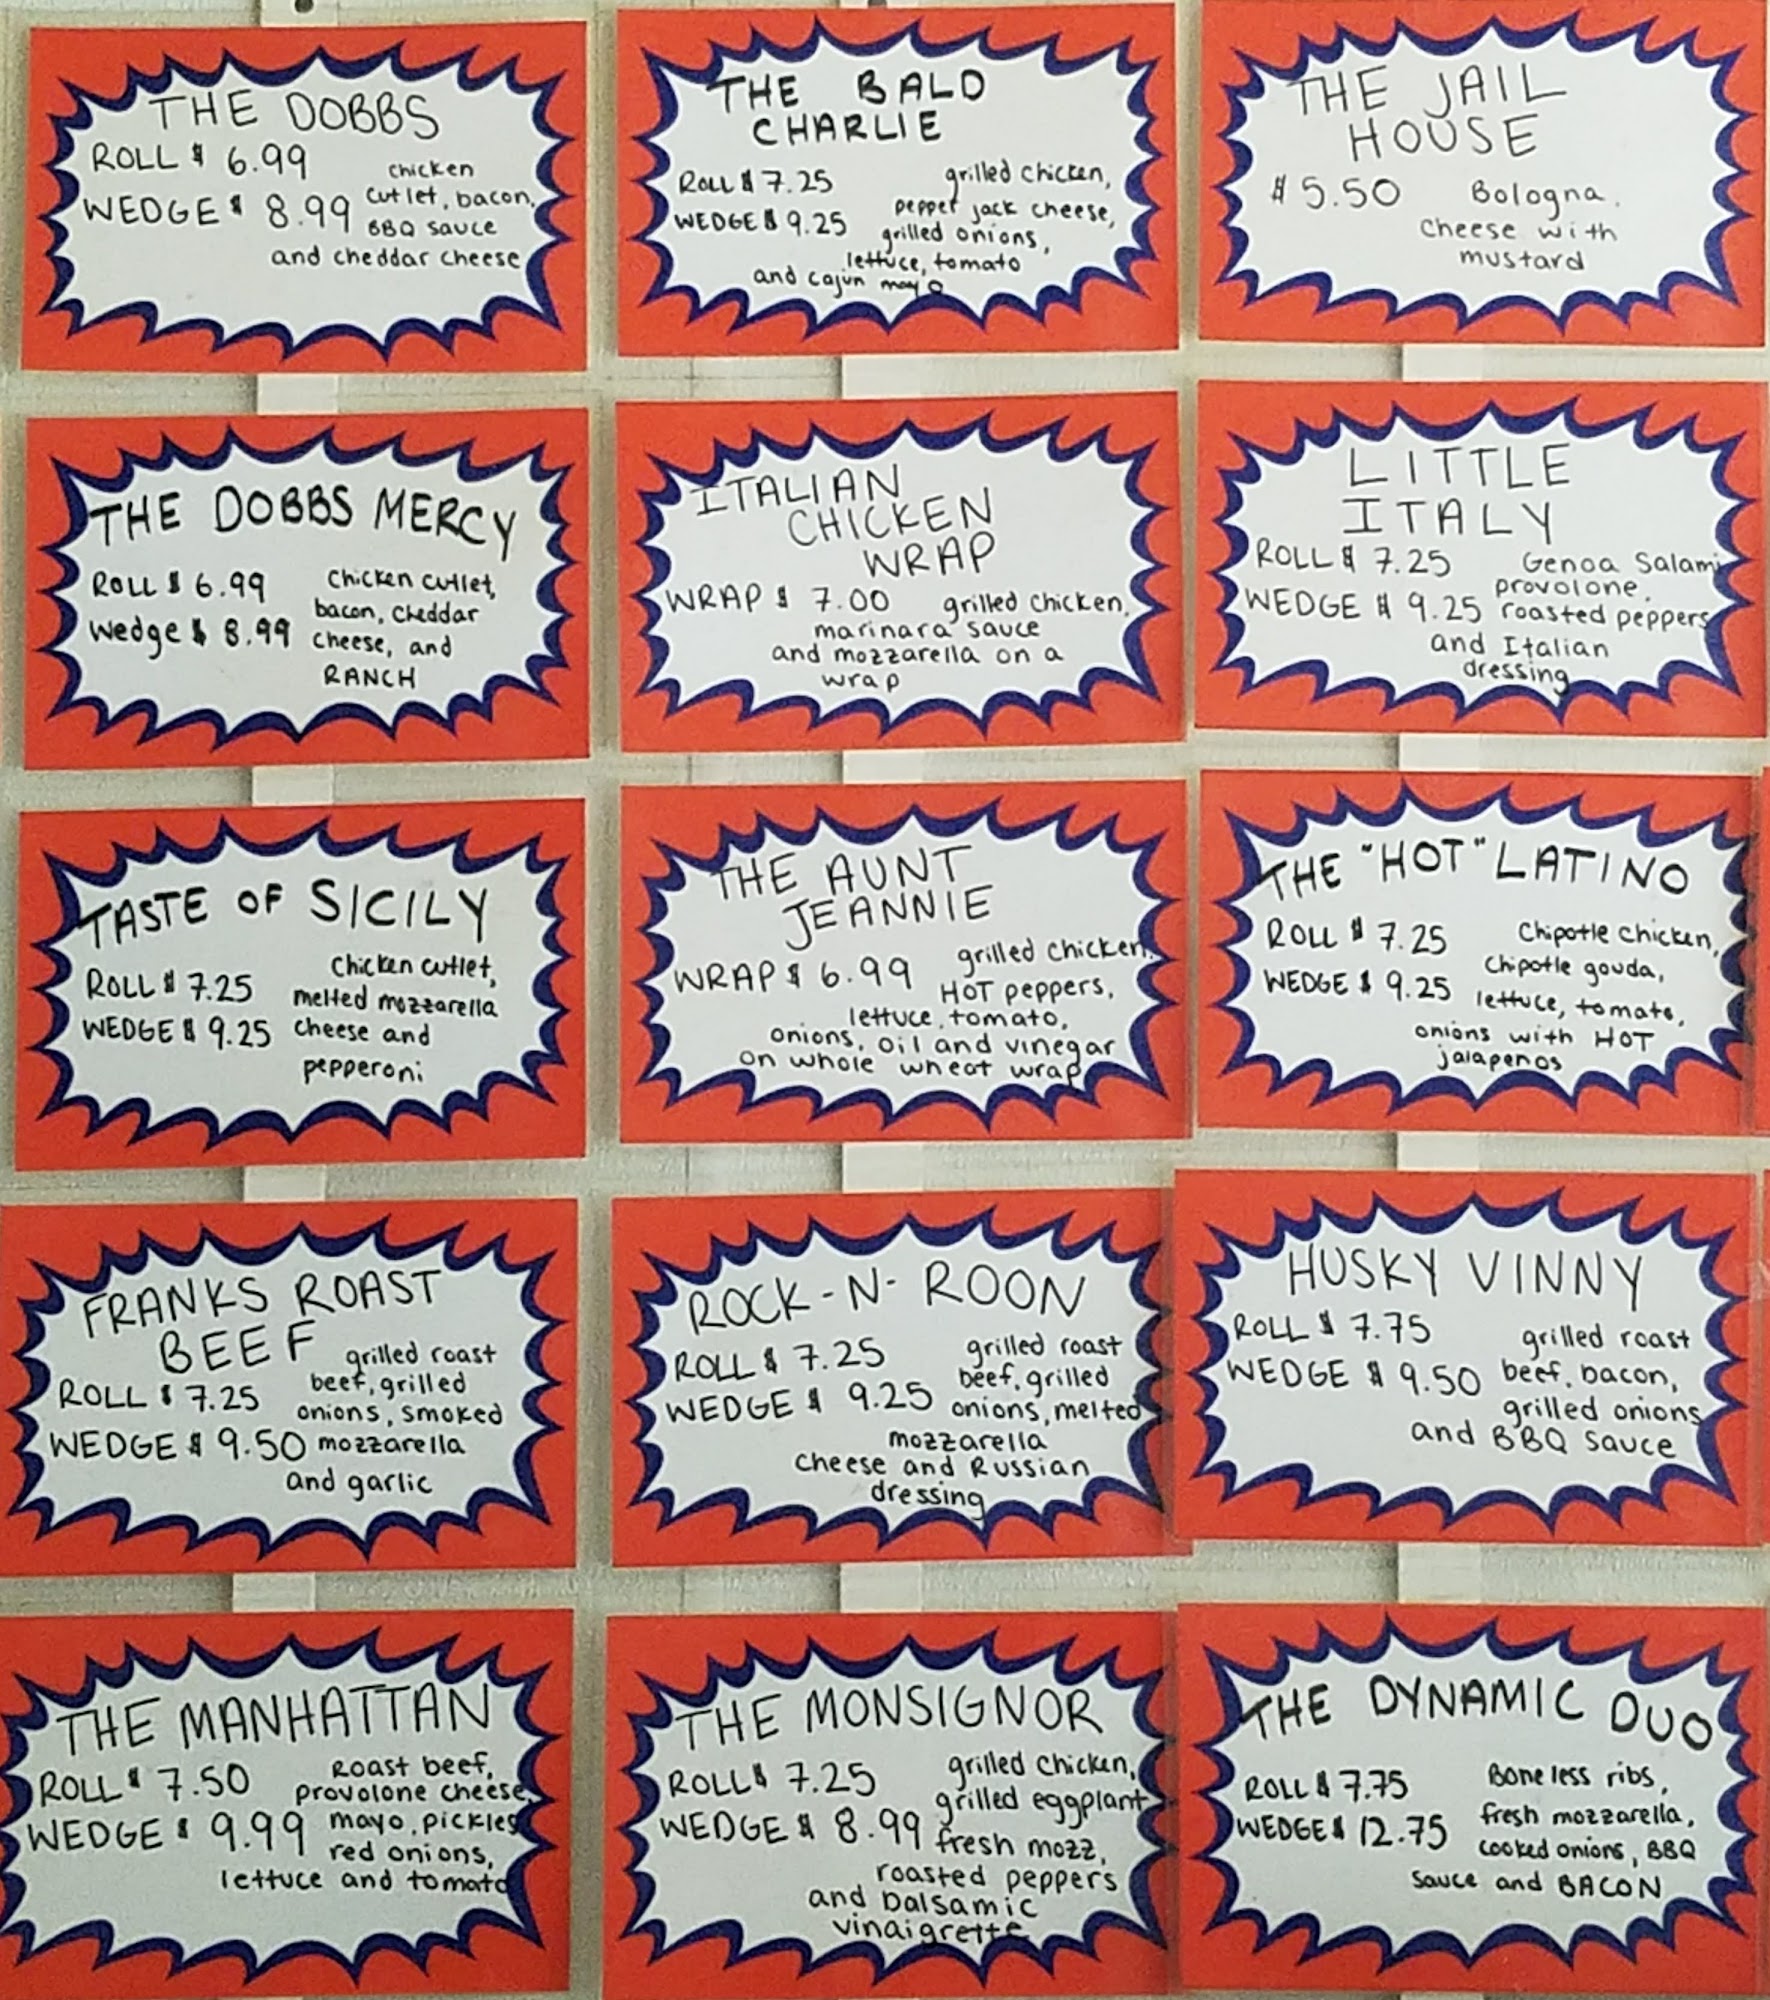 THE DOBBS
ROLL $ 6.99
WEDGE $ 8.99
chicken
cutlet, bacon,
BBQ sauce
and cheddar cheese
THE BALD
CHARLIE
ROLL $ 7.25
WEDGE $ 9.25
grilled chicken,
pepper jack cheese,
grilled onions,
lettuce, tomato
and cajun mayo
THE JAIL
HOUSE
$ 5.50
Bologna,
cheese with
mustard
THE DOBBS MERCY
ROLL $ 6.99
Wedge $ 8.99
chicken cutlet,
bacon, cheddar
cheese, and
RANCH
ITALIAN
CHICKEN
WRAP
WRAP $ 7.00
grilled chicken,
marinara sauce
and mozzarella on a
wrap
LITTLE
ITALY
ROLL $ 7.25
WEDGE $ 9.25
Genoa Salami
provolone,
roasted peppers
and Italian
dressing
TASTE OF SICILY
ROLL $ 7.25
WEDGE $ 9.25
chicken cutlet,
melted mozzarella
cheese and
pepperoni
THE AUNT
JEANNIE
WRAP $ 6.99
grilled chicken,
HOT peppers,
lettuce, tomato,
onions, oil and vinegar
on whole wheat wrap
THE "HOT" LATINO
ROLL $ 7.25
WEDGE $ 9.25
Chipotle chicken,
chipotle gouda,
lettuce, tomato,
onions with HOT
jalapenos
FRANKS ROAST
BEEF
ROLL $ 7.25
WEDGE $ 9.50
grilled roast
beef, grilled
onions, smoked
mozzarella
and garlic
ROCK-N-ROON
ROLL $ 7.25
WEDGE $ 9.25
grilled roast
beef, grilled
onions, melted
mozzarella
cheese and Russian
dressing
HUSKY VINNY
ROLL $ 7.75
WEDGE $ 9.50
grilled roast
beef, bacon,
grilled onions
and BBQ sauce
THE MANHATTAN
ROLL $ 7.50
WEDGE $ 9.99
Roast beef,
provolone cheese,
mayo, pickles
red onions,
lettuce and tomato
THE MONSIGNOR
ROLL $ 7.25
WEDGE $ 8.99
grilled chicken,
grilled eggplant
fresh mozz,
roasted peppers
and balsamic
vinaigrette
THE DYNAMIC DUO
ROLL $ 7.75
WEDGE $ 12.75
Boneless ribs,
fresh mozzarella,
cooked onions, BBQ
sauce and BACON